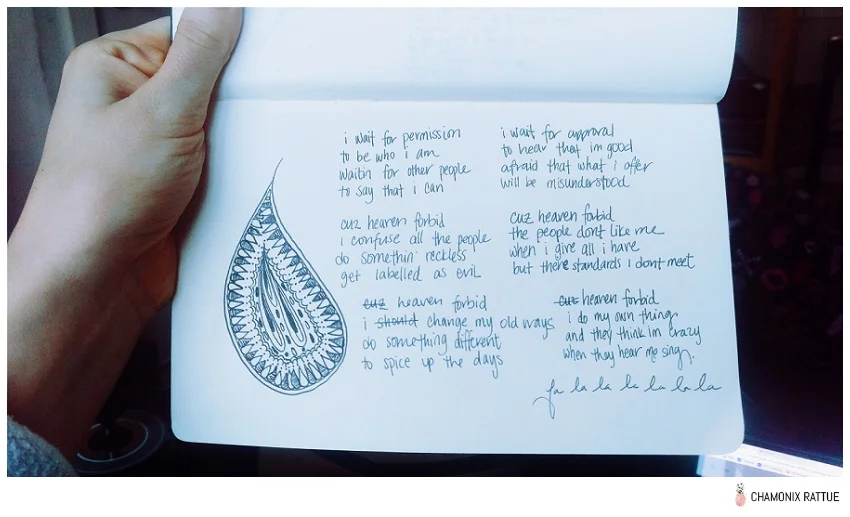 i wait for permission
to be who i am
waitin for other people
to say that i can
cuz heaven forbid
i confuse all the people
do somethin' reckless
get labelled as evil
cuz heaven forbid
i should change my old ways
do something different
to spice up the days
i wait for approval
to hear that im good
afraid that what i offer
will be misunderstood
cuz heaven forbid
the people dont like me
when i give all i have
but there standards i dont meet
cuz heaven forbid
i do my own thing
and they think im crazy
when they hear me sing.
fa la la la la la la
CHAMONIX RATTUE